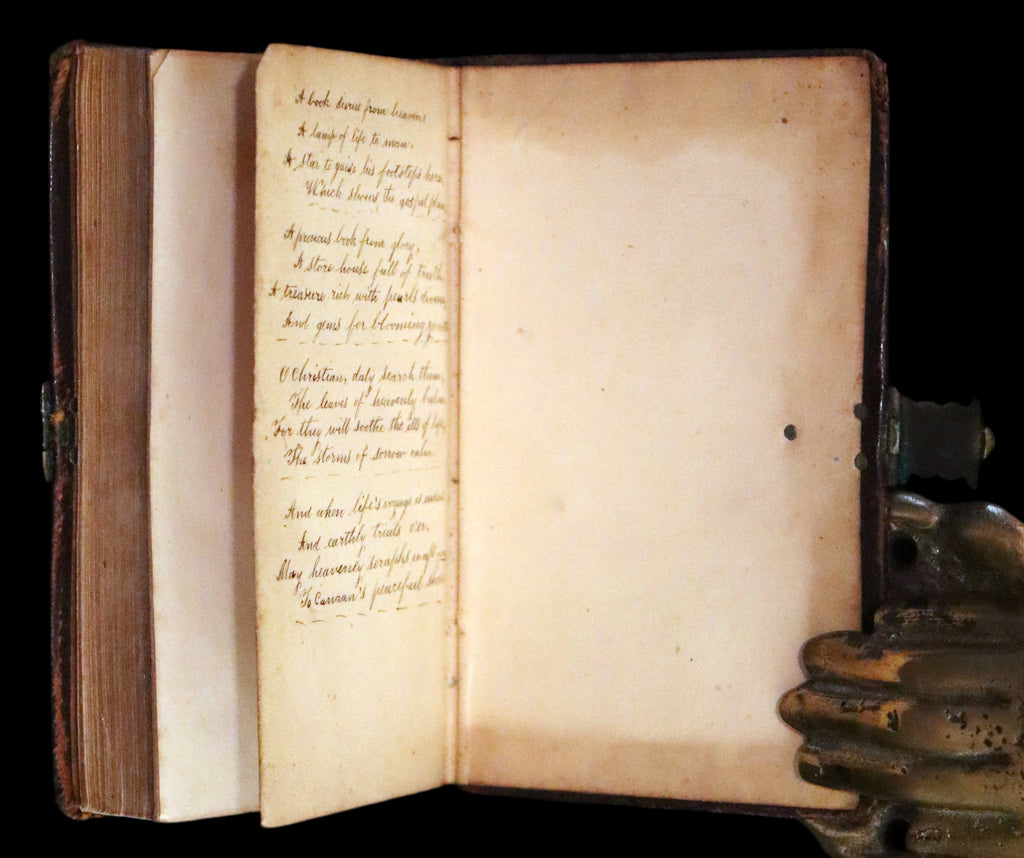 A book divine from heaven
A lamp of life to man.
A star to guide his footsteps here,
Which shows the gospel plan
A precious book from glory,
A store house full of truth
A treasure rich with pearls divine
And gems for blooming youth
O Christian, daly search them,
The leaves of heavenly balm
For they will soothe the ills of life,
The storms of sorrow calm
And when life's voyage is ended
And earthly trials o'er,
May heavenly seraphs waft
To Canaan's peaceful shore